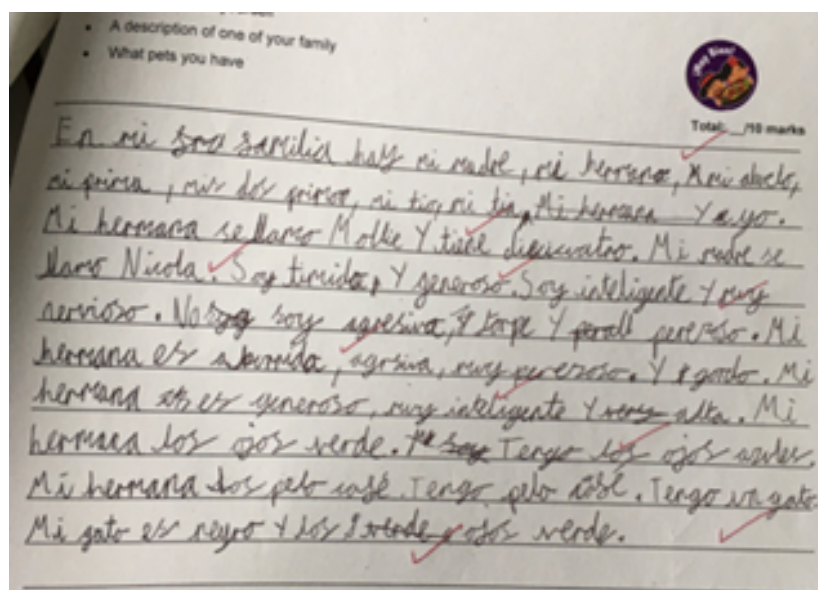 A description of one of your family
What pets you have
¡Muy Bien!
Total: __/10 marks
En mi familia hay mi madre, mi hermana, mi abuelo,
mi prima, mis dos primos, mi tio, mi tia, Mi hermana Y yo.
Mi hermana se llamo Mollie Y tiene diecicuatro. Mi madre se
llamo Nicola. Soy timido, Y generoso. Soy inteligente Y muy
nervioso. No soy agresiva, Y torpe Y perezoso. Mi
hermana es aburrida, agrsiva, muy perezoso. Y gordo. Mi
hermana es generoso, muy inteligente Y alta. Mi
hermana los ojos verde. Tengo los ojos azules.
Mi hermana los pelo café. Tengo pelo café. Tengo un gato.
Mi gato es negro Y los verde ojos verde.